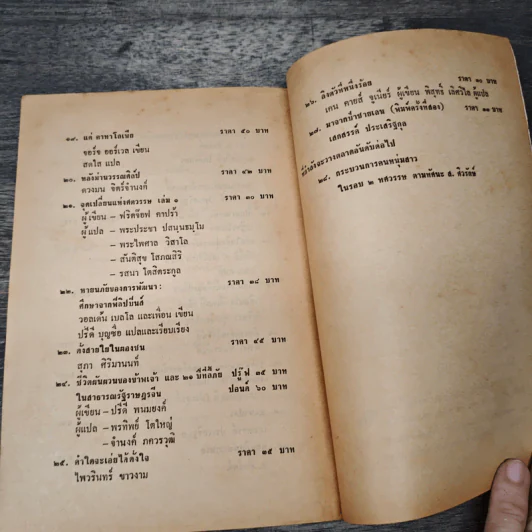 ๑๙. แด่ คาทาโลเนีย ราคา ๕๐ บาท
จอร์จ ออร์เวล เขียน
สดใส แปล
๒๐. หลังม่านวรรณศิลป์ ราคา ๔๒ บาท
ดวงมน จิตร์จำนงค์
๒๑. จุดเปลี่ยนแห่งศตวรรษ เล่ม ๑ ราคา ๓๐ บาท
ผู้เขียน – ฟริตจ๊อฟ คาปร้า
ผู้แปล – พระประชา ปสนฺนธมฺโม
– พระไพศาล วิสาโล
– สันติสุข โสภณสิริ
– รสนา โตสิตระกูล
๒๒. หายนภัยของการพัฒนา : ราคา ๓๘ บาท
ศึกษาจากฟิลิปปินส์
วอลเด้น เบลโล และเพื่อน เขียน
ปรีดี บุญซื่อ แปลและเรียบเรียง
๒๓. ดังสายใยในตองชน ราคา ๔๕ บาท
สุภา ศิริมานนท์
๒๔. ชีวิตผันผวนของข้าพเจ้า และ ๒๑ ปีที่ลี้ภัย ปรู๊ฟ ๓๕ บาท
ในสาธารณรัฐราษฎรจีน ปอนด์ ๖๐ บาท
ผู้เขียน – ปรีดี พนมยงค์
ผู้แปล – พรทิพย์ โตใหญ่
– จำนงค์ ภควรวุฒิ
๒๕. คำใดจะเอ่ยได้ดั่งใจ ราคา ๓๕ บาท
ไพวรินทร์ ขาวงาม
๒๖. ลิงตัวที่หนึ่งร้อย ราคา ๓๐ บาท
เคน คายส์ จูเนียร์ ผู้เขียน พิสุทธิ์ เลิศวิไล ผู้แปล
๒๗. มาจากป่าชายเลน (พิมพ์ครั้งที่สอง) ราคา ๓๓ บาท
เสกสรรค์ ประเสริฐกุล
ที่กำลังจะวางตลาดอันดับต่อไป
๒๘. กระบวนการคนหนุ่มสาว
ในรอบ ๒ ทศวรรษ ตามทัศนะ ส. ศิวรักษ์